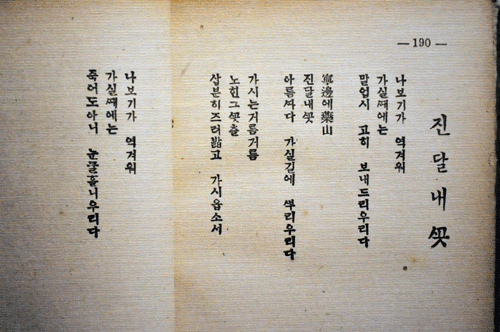 — 190 —
진달내ᄭᅩᆺ
나보기가 역겨워
가실ᄯᅢ에는
말업시 고히 보내드리우리다
寧邊에藥山
진달내ᄭᅩᆺ
아름ᄯᅡ다 가실길에 ᄲᅮ리우리다
가시는거름거름
노힌그ᄭᅩᆺ츨
삽분히즈려밟고 가시옵소서
나보기가 역겨워
가실ᄯᅢ에는
죽어도아니 눈물흘니우리다